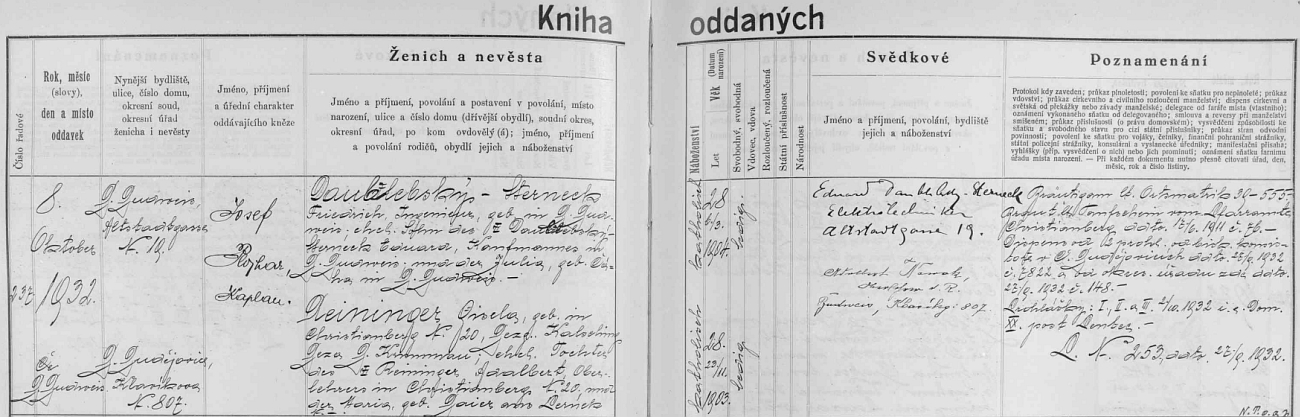 Kniha oddaných
Číslo řadové
Rok, měsíc
(slovy),
den a místo
oddavek
Nynější bydliště,
ulice, číslo domu,
okresní soud,
okresní úřad
ženicha i nevěsty
Jméno, příjmení
a úřední charakter
oddávajícího kněze
Ženich a nevěsta
Jméno a příjmení, povolání a postavení v povolání, místo
narození, ulice a číslo domu (dřívější obydlí), soudní okres,
okresní úřad, po kom ovdověly (á); jméno, příjmení
a povolání rodičů, obydlí jejich a náboženství
Náboženství
Let
Věk (Datum narození)
Svobodný, svobodná
Vdovec, vdova
Rozloučený, rozloučená
Státní příslušnost
Národnost
Svědkové
Jméno a příjmení, povolání, bydliště
jejich a náboženství
Poznamenání
Protokol kdy zaveden; průkaz plnoletosti; povolení ke sňatku pro nepinoleté; průkaz
vdovství; průkaz církevního a civilního rozloučení manželství; dispens církevní a
světská od překážky nebo závady manželské; delegace od faráře místa (vlastního);
oznámení vykonaného sňatku od delegovaného; smlouva a reversy při manželství
smíšeném; průkaz příslušnosti (o právu domovském); vysvědčení způsobilosti ke
sňatku a svobodného stavu pro cizí státní příslušníky; průkaz stran odvodní
povinnosti; povolení ke sňatku pro vojáky, četníky, finanční pohraniční strážníky,
státní policejní strážníky, konsulární a vyslanecké úředníky; manifestační přísaha;
vyhlášky (příp. vysvědčení o nich) nebo jich prominutí; oznámení sňatku farnímu
úřadu místa narození. — Při každém dokumentu nutno přesně citovati úřad, den,
měsíc, rok a číslo listiny.
237
8.
Oktober
1932.
Č.
B. Budweis
B. Budweis,
Altstadtgasse
N. 19.
B. Budějovice,
Klavíkova
N. 807.
Josef
Rojhar,
Kaplan.
Daublebský - Sterneck
Friedrich, Ingenieur, geb. in B. Bud-
weis; ehel. Sohn des Daublebský-
Sterneck Eduard, Kaufmannes in
B. Budweis; und der Julia, geb.
in B. Budweis. —
Reininger Gisela, geb. in
Christianberg N. 120, Bezg. Kalsching
Beza B. Krummau; ehel. Tochter
des Reininger, Adalbert, Ober-
lehrers in Christianberg, N. 20, und
der Maria, geb. Gaier aus
katholisch
28
1904.
ledig.
katholisch
28.
1903.
ledig
Eduard Daublebsky-Sterneck
Elektrotechniker
Altstadtgasse 19.
Adalbert Nowak,
Budweis, Klavíkg: 807.
Bräutigam lt. Ortsmatrik 30-555-
Braut lt. Taufschein vom Pfarramte
Christianberg ddto. 1911 č. 76. —
1932
č. 7822 a od okres. úřadu zde ddto.
1932 č. 148. —
Prohlášky: I., II. a III. 1932 i. e. Dom.
XX. post Pentec. —
L. N. 253, ddto. 27/9. 1932.